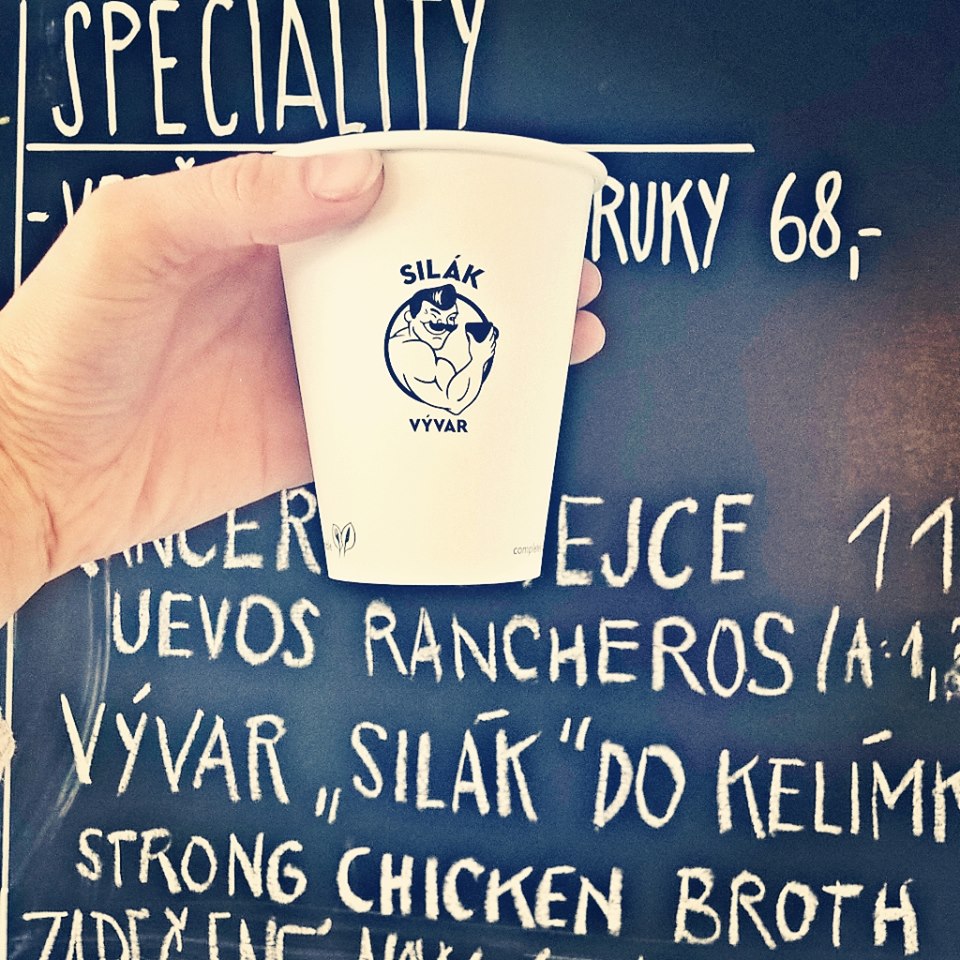 SPECIALITY
RUKY 68,-
SILÁK
VÝVAR
EJCE 11
UEVOS RANCHEROS /A:1,
VÝVAR „SILÁK“ DO KELÍMK
STRONG CHICKEN BROTH